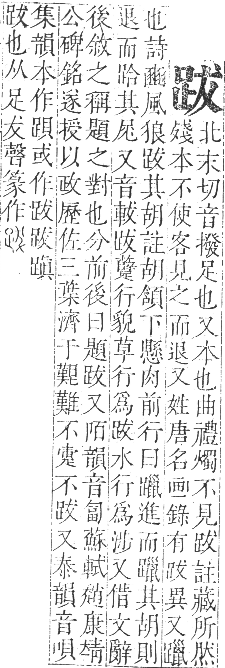 跋
北末切音撥足也又本也曲禮燭不見跋註藏所然
殘本不使客見之而退又姓唐名畫錄有跋異又躐
也詩豳風狼跋其胡註胡頷下懸肉前行曰躐進而躐其胡則
退而跲其尾又音軷跋躠行貌草行爲跋水行爲涉又借文辭
後敘之稱題之對也分前後曰題跋又陌韻音匐蘇軾趙康靖
公碑銘遂授以政歷佐三葉濟于艱難不疐不跋又泰韻音唄
集韻本作跟或作跋
跋也从足犮聲篆作